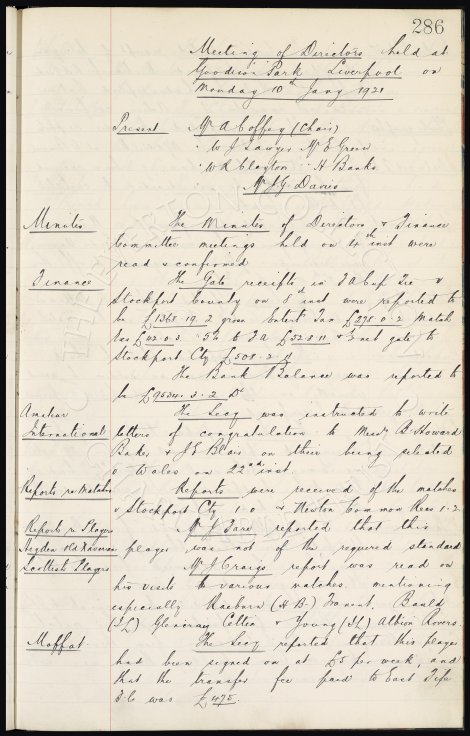 286
Meeting of Directors held at
Goodison Park Liverpool on
Monday 10th Jany 1921
Present Mr A Coffey (Chair)
" W J Sawyer Mr E Green
" W R Clayton " H Banks
Mr J. G. Davies
Minutes The Minutes of Directors & Finance
Committee meetings held on 4th inst were
read & confirmed
Finance The Gate receipts in FA Cup Tie v
Stockport County on 8 inst were reported to
be £1365. 19. 2 gross Entert Tax £275. 0. 2 Match
5% to FA £52. 0. 11 & net gate to
Stockport Cty £508. 2.
The Bank Balance was reported to
be £9534. 3. 2 Dr
Amateur The Secy was instructed to write
International letters of congratulation to Messrs B. Howard
Baker & J E Blair on their being selected
v Wales on 22nd inst.
Reports re Matches Reports were received of the matches
v Stockport Cty 1-0 & Newton Common Recs 1-2.
Reports re Players Mr J Fare reported that this
Higden Old Xaverian player was not of the required standard
Scottish Players Mr J Craigs report was read on
his visits to various matches. mentioning
especially Raeburn (H B.) Bauld
(I L) Celtic & Young (I L) Albion Rovers.
Moffat. The Secy reported that this player
had been signed on at £5 per week, and
that the transfer fee paid to East Fife
F.C was £475.